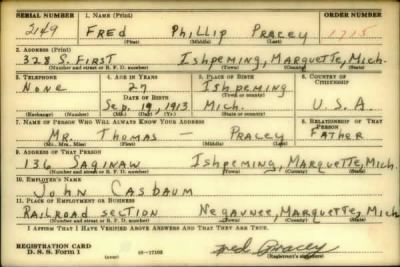 SERIAL NUMBER 1. NAME (Print) ORDER NUMBER
2149 FRED PHILLIP PRACEY 1715
(First) (Middle) (Last)
2. ADDRESS (Print)
328 S. FIRST ISHPEMING, MARQUETTE, MICH.
(Number and street or R. F. D. number) (Town) (County) (State)
3. TELEPHONE 4. AGE IN YEARS 5. PLACE OF BIRTH 6. COUNTRY OF CITIZENSHIP
NONE 27 ISHPEMING
DATE OF BIRTH (Town or county)
SEP. 19, 1913 MICH. U.S.A.
(Exchange) (Number) (Mo.) (Day) (Yr.) (State or country)
7. NAME OF PERSON WHO WILL ALWAYS KNOW YOUR ADDRESS 8. RELATIONSHIP OF THAT PERSON
MR. THOMAS — PRACEY FATHER
(Mr., Mrs., Miss) (First) (Middle) (Last)
9. ADDRESS OF THAT PERSON
136 SAGINAW ISHPEMING, MARQUETTE, MICH.
(Number and street or R. F. D. number) (Town) (County) (State)
10. EMPLOYER'S NAME
JOHN CASBAUM
11. PLACE OF EMPLOYMENT OR BUSINESS
RAILROAD SECTION NEGAUNEE, MARQUETTE, MICH
(Number and street or R. F. D. number) (Town) (County) (State)
I AFFIRM THAT I HAVE VERIFIED ABOVE ANSWERS AND THAT THEY ARE TRUE.
REGISTRATION CARD
D. S. S. Form 1 Fred Pracey
(Registrant's signature)